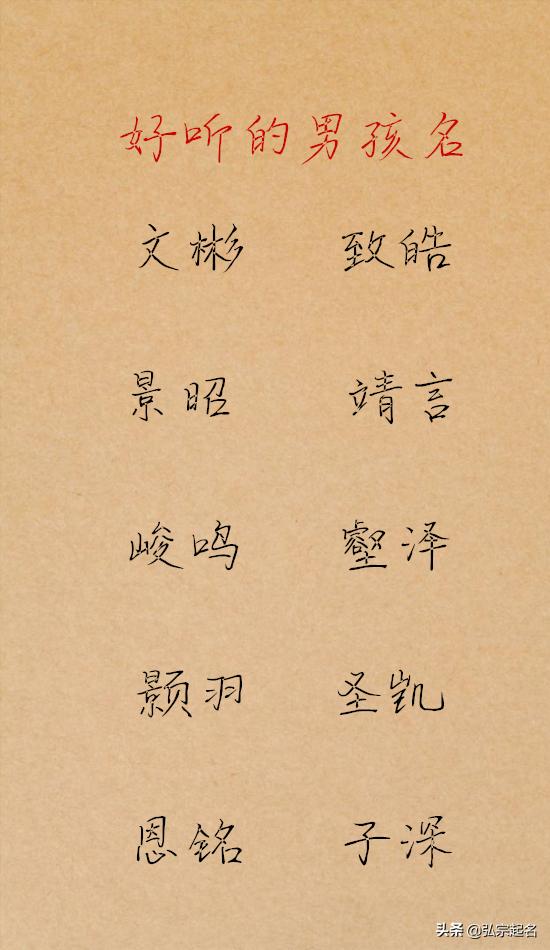 好听的男孩名
文彬 致皓
景昭 靖言
峻鸣 壑泽
颢羽 圣凯
恩铭 子深
头条 @弘宗起名